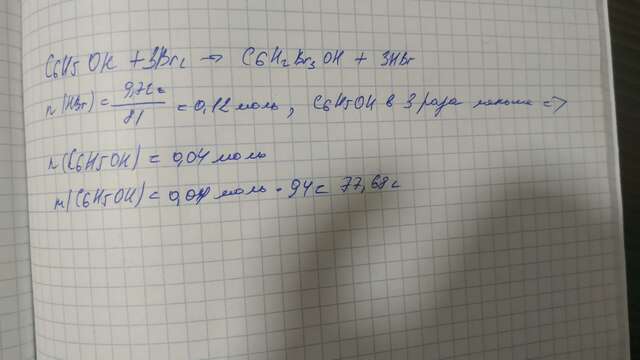 C6H5OH + 3Br2 → C6H2Br3OH + 3HBr
n(HBr) = 9,72г / 81 = 0,12 моль, C6H5OH в 3 раза меньше =>
n(C6H5OH) = 0,04 моль
m(C6H5OH) = 0,04 моль · 94 = 77,68г